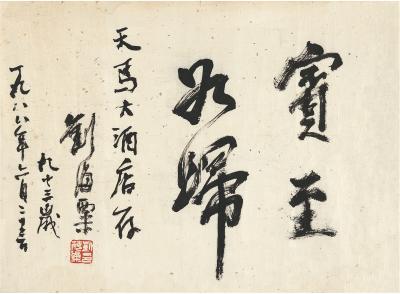 賓至
如歸
天馬大酒店存
劉海粟
九十三歲
一九八八年六月二